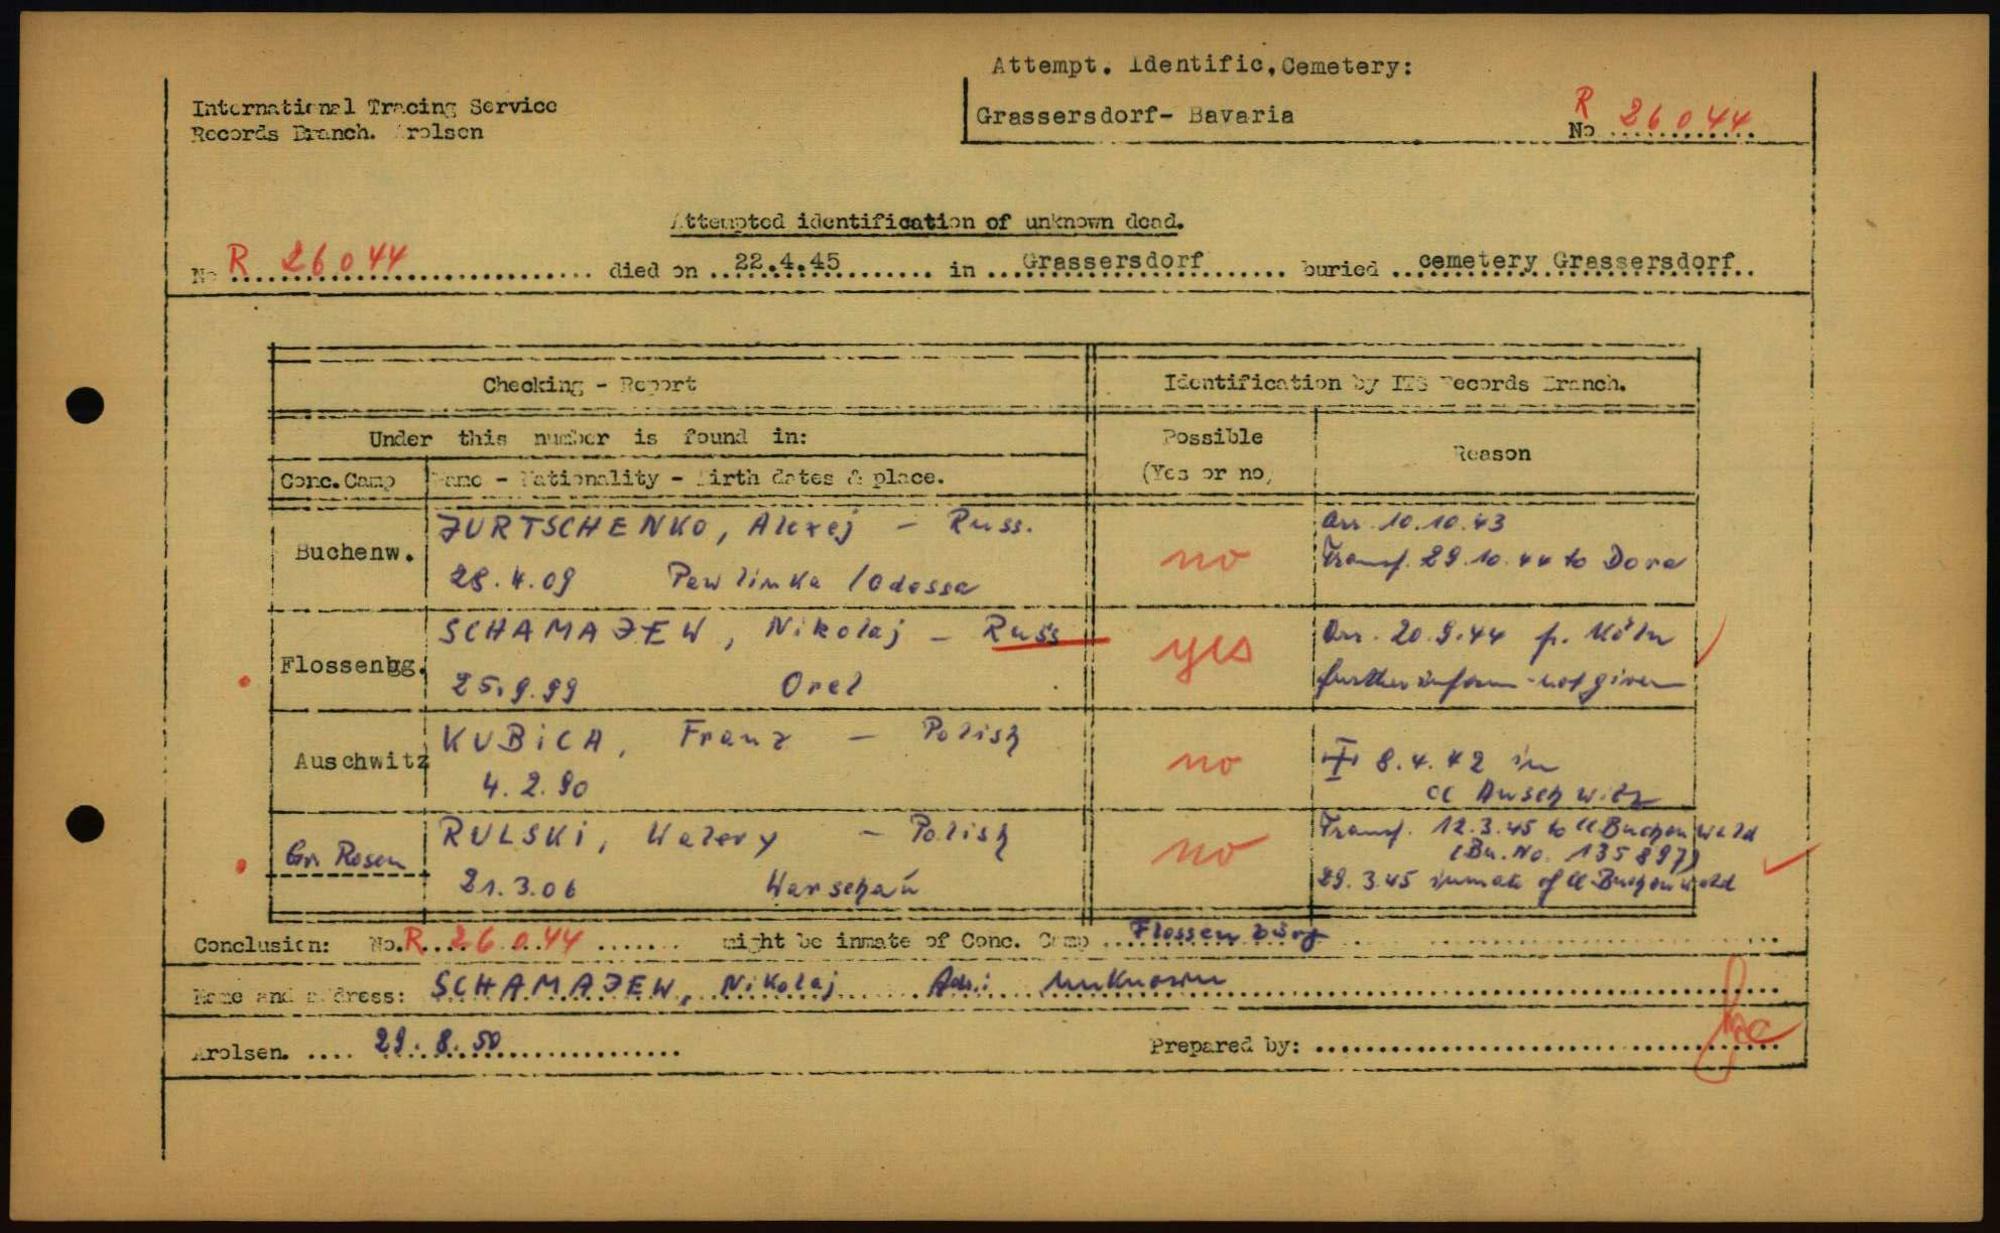 Attempt. Identific, Cemetery:
International Tracing Service
Records Branch. Arolsen
Grassersdorf- Bavaria
R
No 26044
Attempted identification of unknown dead.
No R 26044 died on 22.4.45 in Grassersdorf buried cemetery Grassersdorf
Checking - Report
Identification by ITS Records Branch.
Under this number is found in:
Possible
(Yes or no)
Reason
Conc.Camp
Name - Nationality - Birth dates & place.
Buchenw.
JURTSCHENKO, Alexej - Russ.
28.4.09 Pawlinka /Odessa
no
Arr. 10.10.43
Transf. 29.10.44 to Dora
Flossenbg.
SCHAMAJEW, Nikolaj - Russ
25.9.99 Orel
yes
Arr. 20.9.44 fr. Köln
further inform. not given
Auschwitz
KUBiCA, Franz - Polish
4.2.90
no
8.4.42 in
CC Auschwitz
Gr. Rosen
RULSKi, Walery - Polish
21.3.06 Warschau
no
Transf. 12.3.45 to CC Buchenwald
(Bu. No. 135897)
29.3.45 inmate of CC Buchenwald
Conclusion: No. R 26044 might be inmate of Conc. Camp Flossenbürg
Name and address: SCHAMAJEW, Nikolaj Adr.: unknown
Arolsen. 29.8.50
Prepared by: